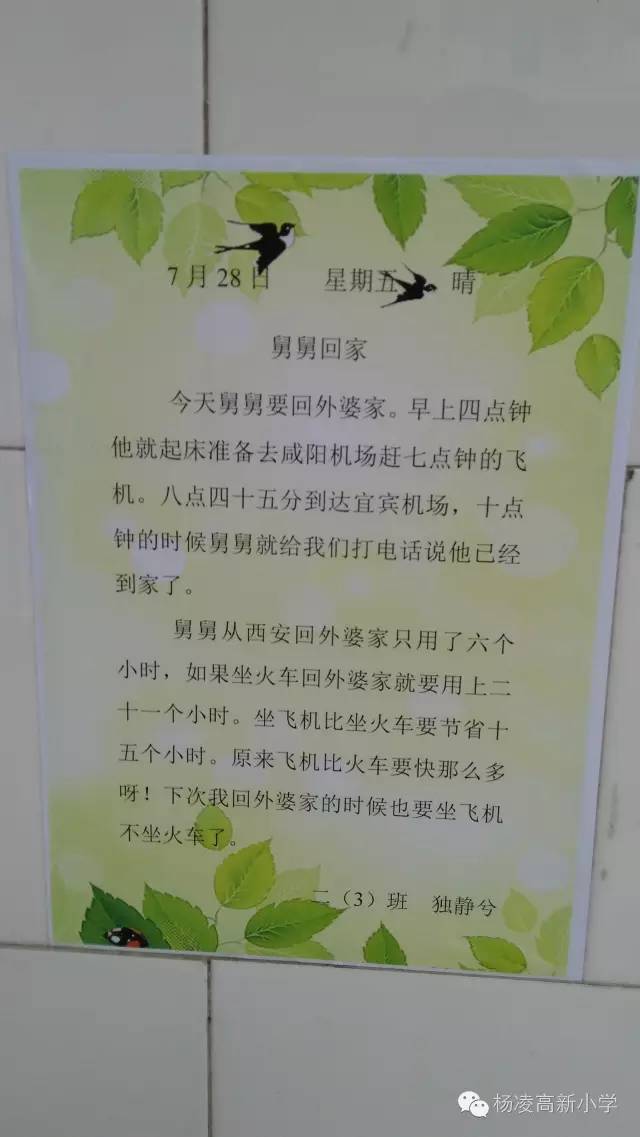 7月28日 星期五 晴
舅舅回家
今天舅舅要回外婆家。早上四点钟
他就起床准备去咸阳机场赶七点钟的飞
机。八点四十五分到达宜宾机场，十点
钟的时候舅舅就给我们打电话说他已经
到家了。
舅舅从西安回外婆家只用了六个
小时，如果坐火车回外婆家就要用上二
十一个小时。坐飞机比坐火车要节省十
五个小时。原来飞机比火车要快那么多
呀！下次我回外婆家的时候也要坐飞机
不坐火车了。
二（3）班 独静兮
杨凌高新小学